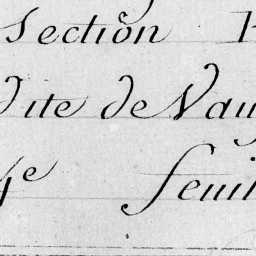 Section
dite de Vau
4e feuil